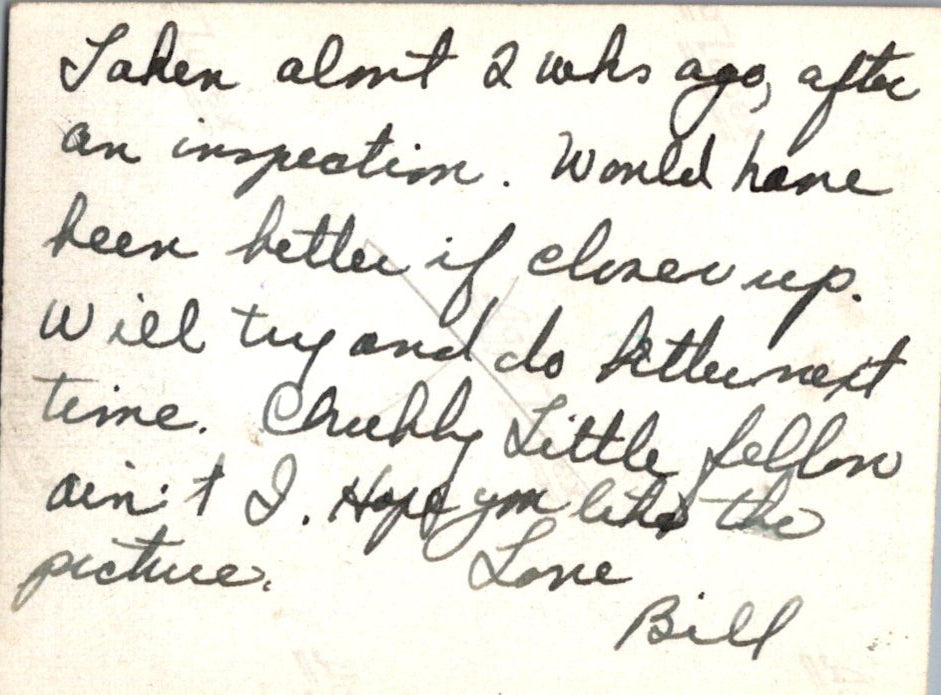 Taken about 2 wks ago, after
an inspection. Would have
been better if closer up.
Will try and do better next
time. Chubby Little fellow
ain't I. Hope you like the
picture. Love
Bill